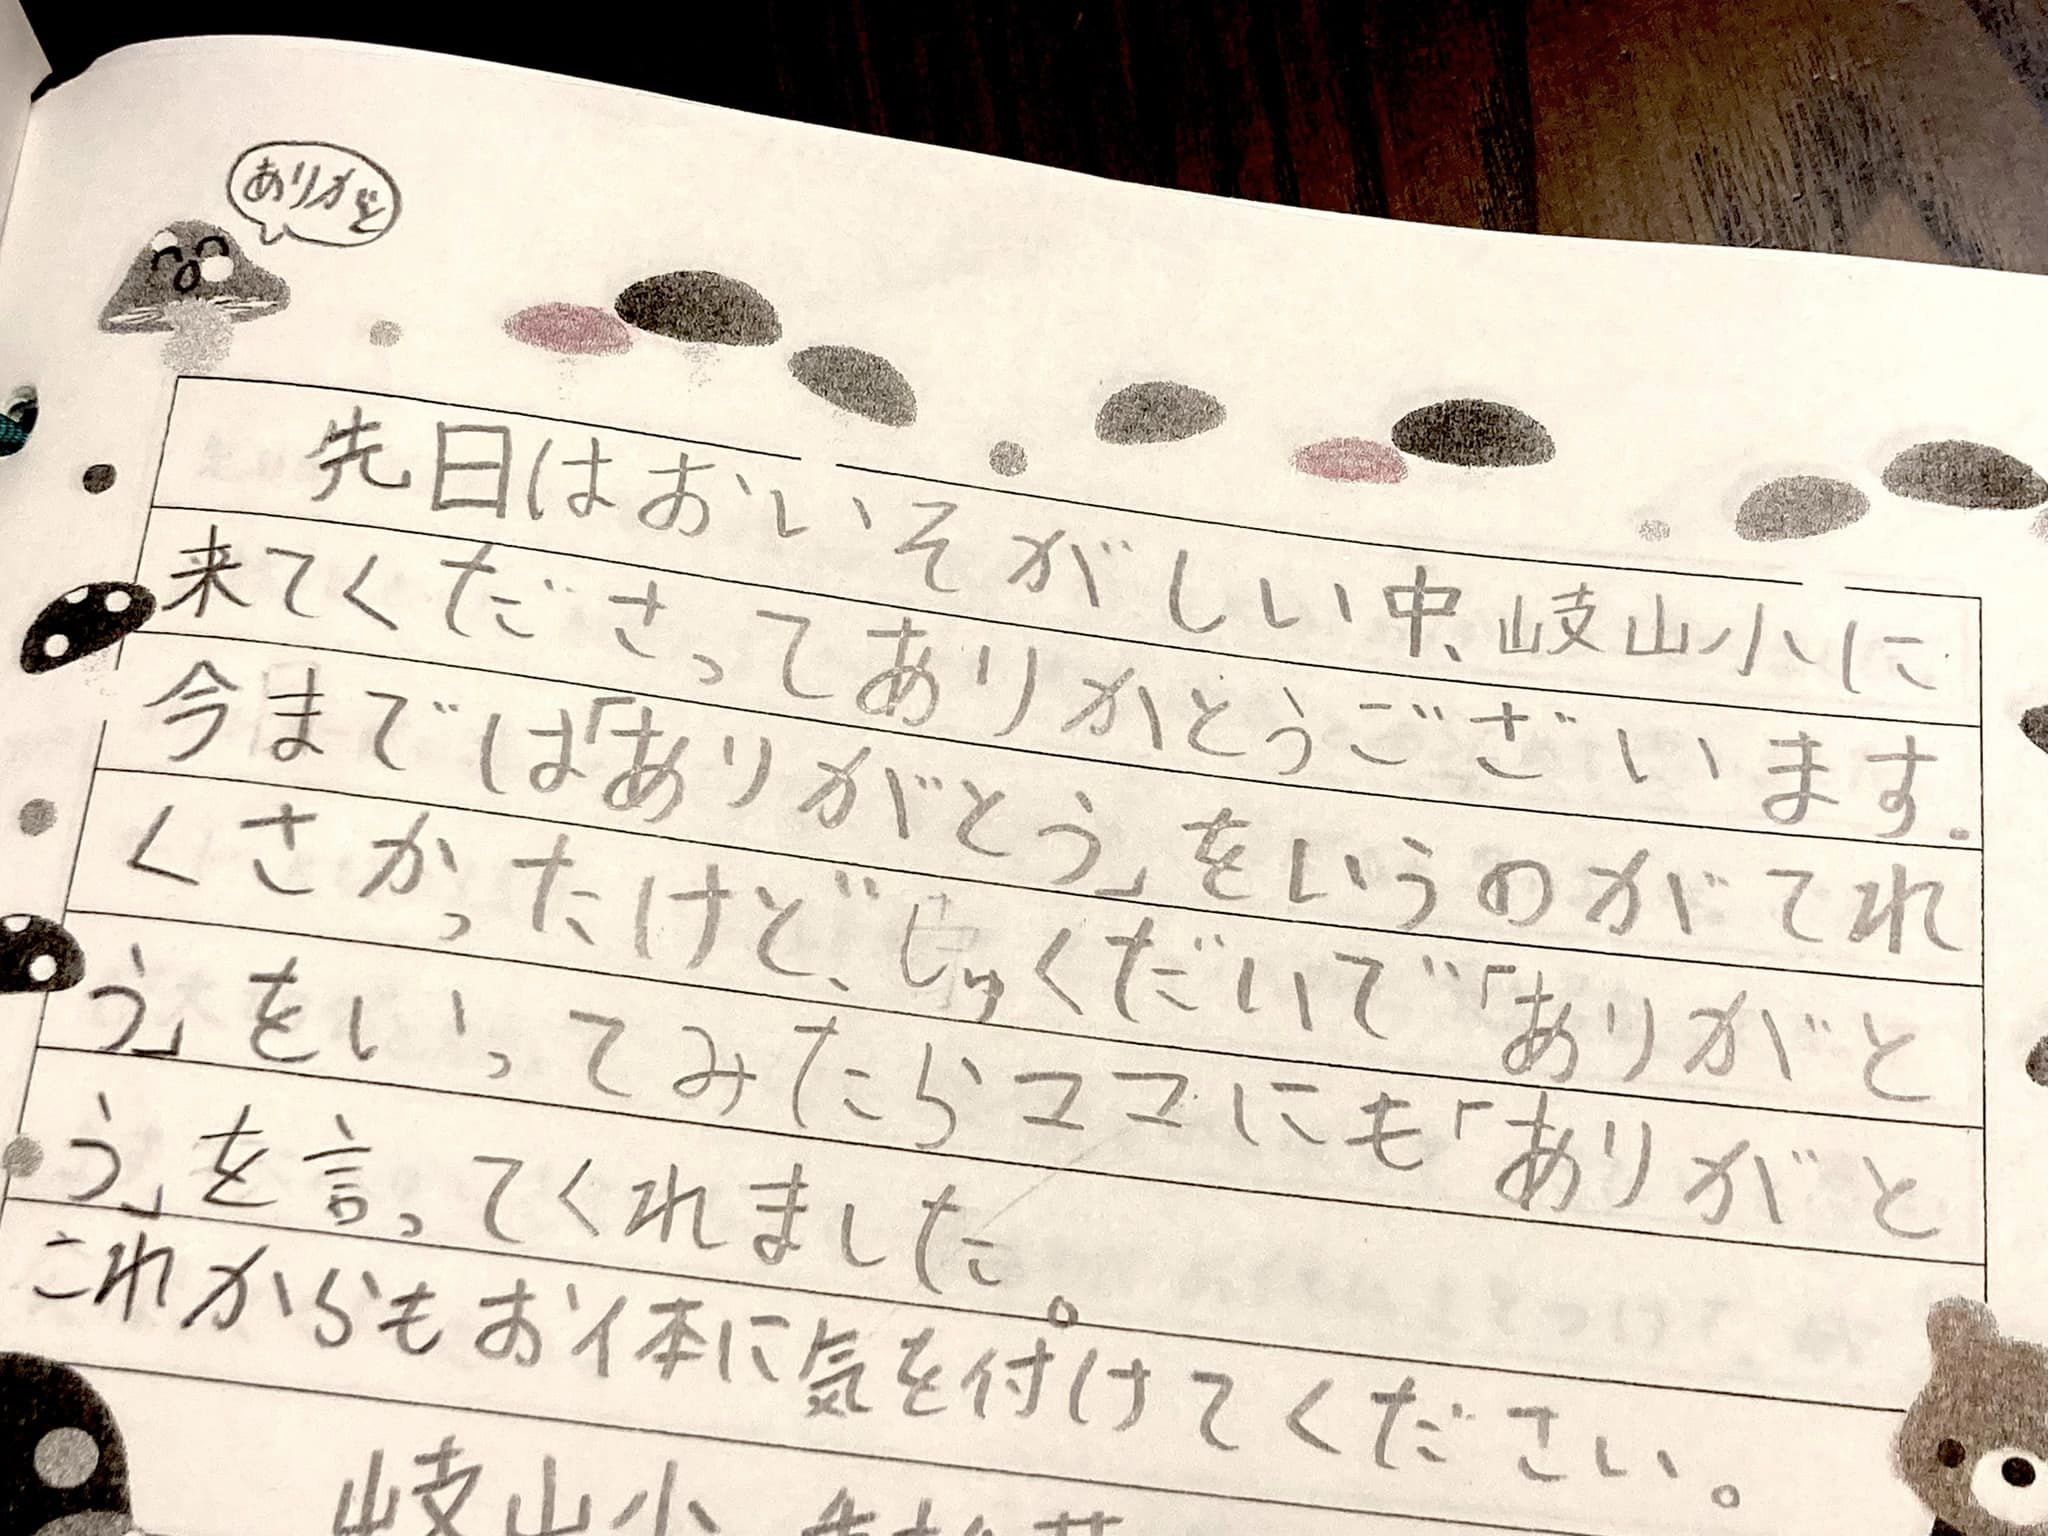 ありがと
先日はおいそがしい中、岐山小に
来てくださってありがとうございます。
今までは「ありがとう」をいうのがてれ
くさかったけど、しゅくだいで「ありがと
う」をいってみたらママにも「ありがと
う」を言ってくれました。
これからもお体に気を付けてください。
岐山小